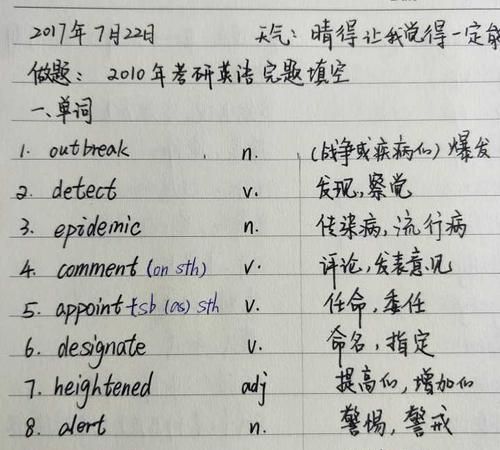 2017年7月22日 天气：晴得让我觉得一定能
做题：2010年考研英语完题填空
一、单词
1. outbreak n. (战争或疾病们) 爆发
2. detect v. 发现,察觉
3. epidemic n. 传染病,流行病
4. comment (on sth) v. 评论,发表意见
5. appoint +sb (as) sth v. 任命,委任
6. designate v. 命名,指定
7. heightened adj 提高们,增加们
8. alert n. 警惕,警戒